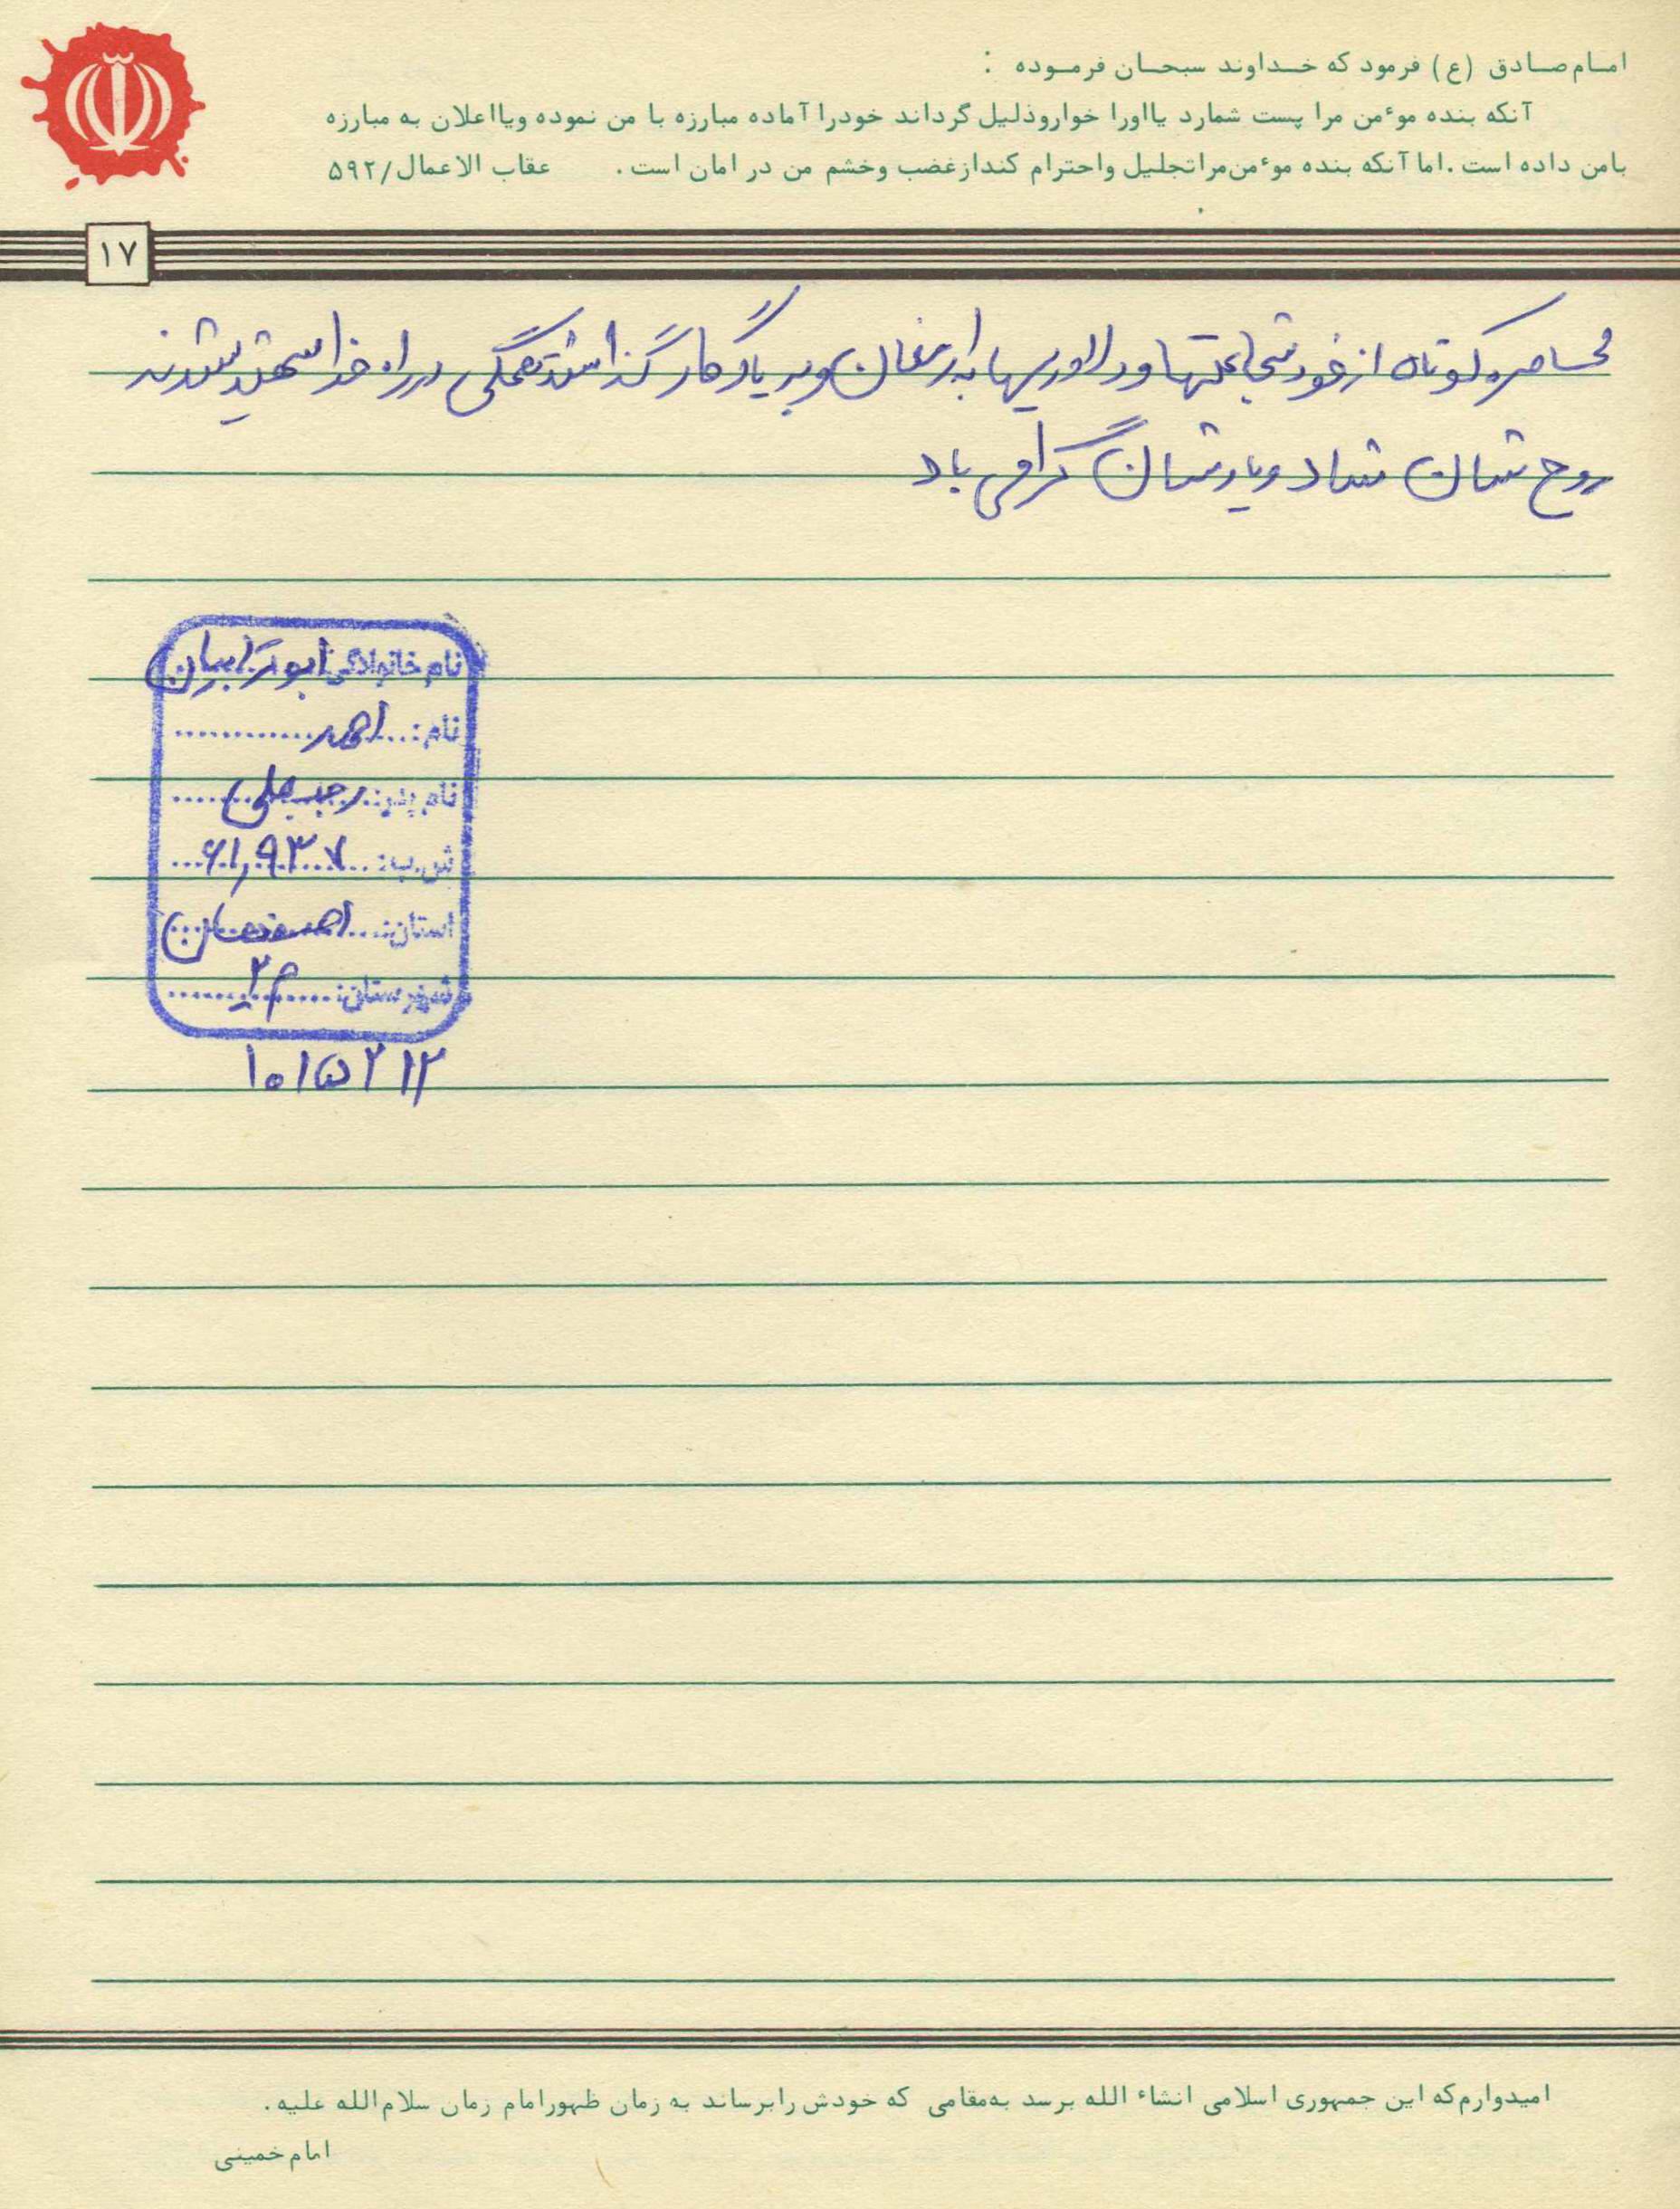 امام صادق (ع) فرمود که خداوند سبحان فرموده :
آنکه بنده موٴمن مرا پست شمارد یااورا خواروذلیل گرداند خودرا آماده مبارزه با من نموده ویااعلان به مبارزه
بامن داده است .اما آنکه بنده موٴمن‌مراتجلیل واحترام کندازغضب وخشم من در امان است . عقاب الاعمال/۵۹۲
۱۷
محاصره کوتاه از خود شجاعتها و دلاوریها به ارمغان و به یادگار گذاشتند همگی در راه خدا شهید شدند
روح شان شاد و یادشان گرامی باد
نام خانوادگی: ابوترابیان
نام: احمد
نام پدر: رجبعلی
ش.ب: ۶۱٫۹۳۰۷
استان: اصفهان
شهرستان: م۲
۱۰۱۵۲۱۲
امیدوارم‌که این جمهوری اسلامی انشاء الله برسد به‌مقامی که خودش رابرساند به زمان ظهورامام زمان سلام‌الله علیه .
امام خمینی